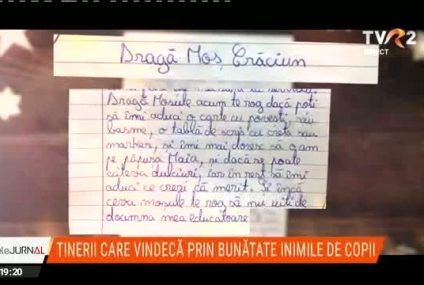 TVR2
DIRECT
Dragă Moș Crăciun
Dragă Moșule acum te rog dacă poți
să îmi aduci o carte cu povești sau
basme, o tablă de scris cu creta sau
marker, și îmi mai doresc să o am
pe păpușa Maia, și dacă se poate
câteva dulciuri, iar în rest să îmi
aduci ce crezi că merit. Și încă
ceva moșule te rog să nu uiți de
doamna mea educătoare
TELEJURNAL
TINERII CARE VINDECĂ PRIN BUNĂTATE INIMILE DE COPII
19:20